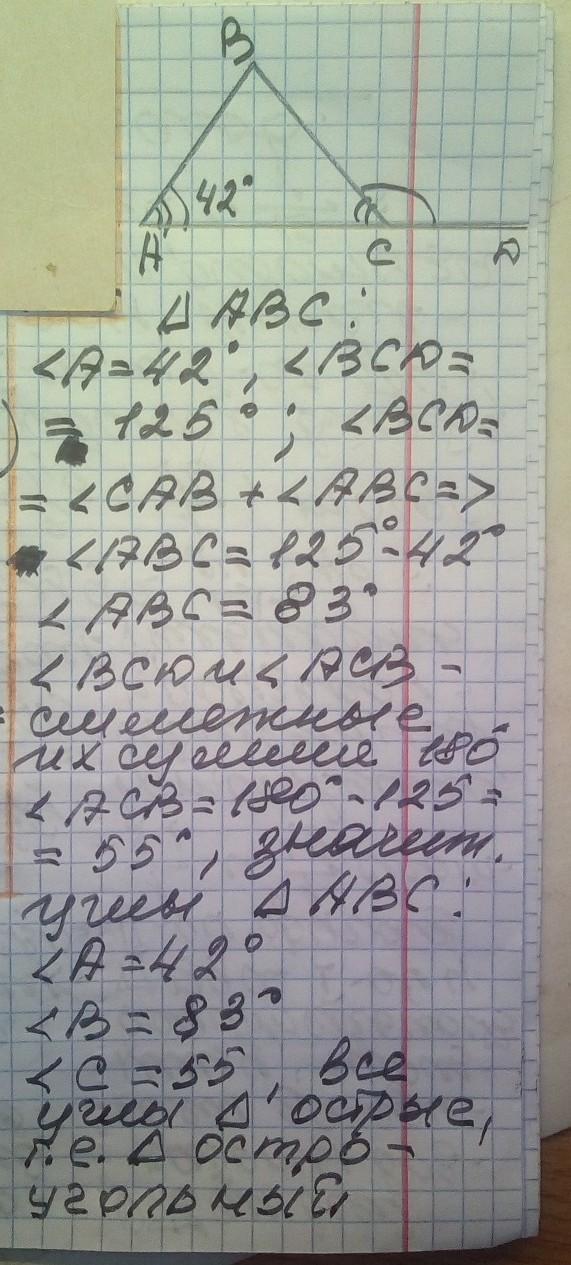 B
42°
A C D
Δ ABC:
<A=42°, <BCD=
= 125°; <BCD=
= <CAB + <ABC=>
<ABC= 125°-42°
<ABC= 83°
<BCD и <ACB -
смежные
их сумма 180°
<ACB=180°-125=
= 55°, значит.
углы ΔABC:
<A=42°
<B= 83°
<C=55, все
углы Δ острые,
т.е. Δ остро-
угольный